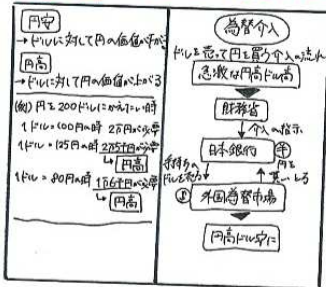 円安
→ドルに対して円の価値が下がる
円高
→ドルに対して円の価値が上がる
(例)円を200ドルにかえたい時
1ドル=100円の時 2万円が必要
1ドル=125円の時 2万5千円が必要
↳円高
1ドル=80円の時 1万6千円が必要
↳円高
為替介入
ドルを売って円を買う介入の流れ
急激な円高ドル高
財務省
↓介入の指示
日本銀行
円を
ドルを売る
外国為替市場
円高ドル安に